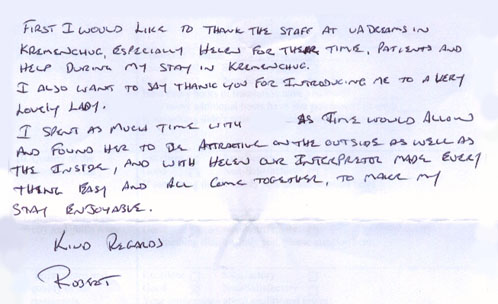 FIRST I WOULD LIKE TO THANK THE STAFF AT UADREAMS IN
KREMENCHUG, ESPECIALLY HELEN FOR THEIR TIME, PATIENTS AND
HELP DURING MY STAY IN KREMENCHUG.
I ALSO WANT TO SAY THANK YOU FOR INTRODUCING ME TO A VERY
LOVELY LADY.
I SPENT AS MUCH TIME WITH AS TIME WOULD ALLOW
AND FOUND HER TO BE ATTRACTIVE ON THE OUTSIDE AS WELL AS
THE INSIDE, AND WITH HELEN OUR INTERPRETOR MADE EVERY
THING EASY AND ALL COME TOGETHER, TO MAKE MY
STAY ENJOYABLE.
KIND REGARDS
ROBERT